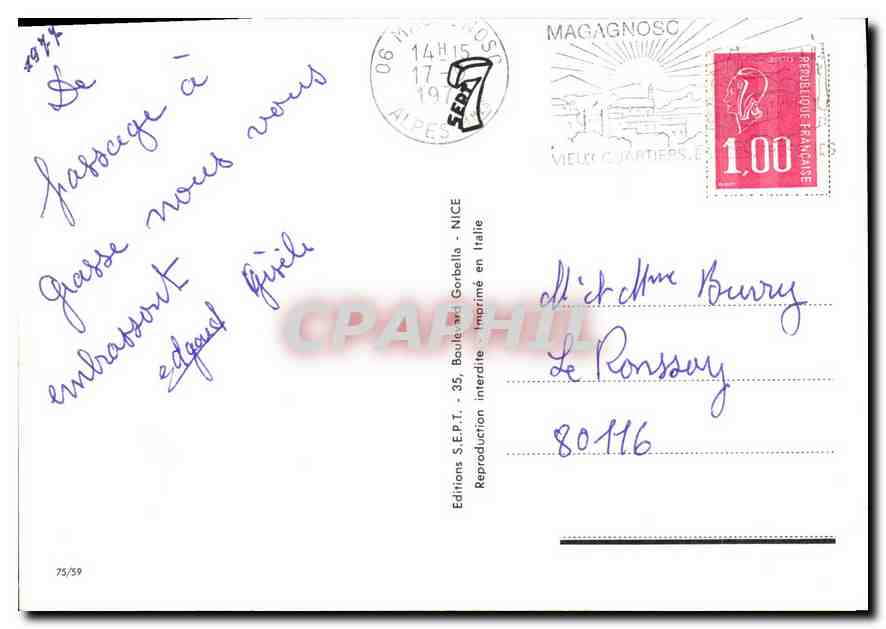 1977
De
passage à
grasse nous vous
embrassont
edgard Gisèle
06 MAGAGNOSC
14H15
17 -
197
SEPT 7
ALPES
MAGAGNOSC
VIEUX QUARTIERS.
POSTES
REPUBLIQUE FRANÇAISE
1,00
Mr et Mme Buvry
Le Ronssoy
80116
Editions S.E.P.T. - 35, Boulevard Gorbella - NICE
Reproduction interdite - Imprimé en Italie
CPAPHIL
75/59